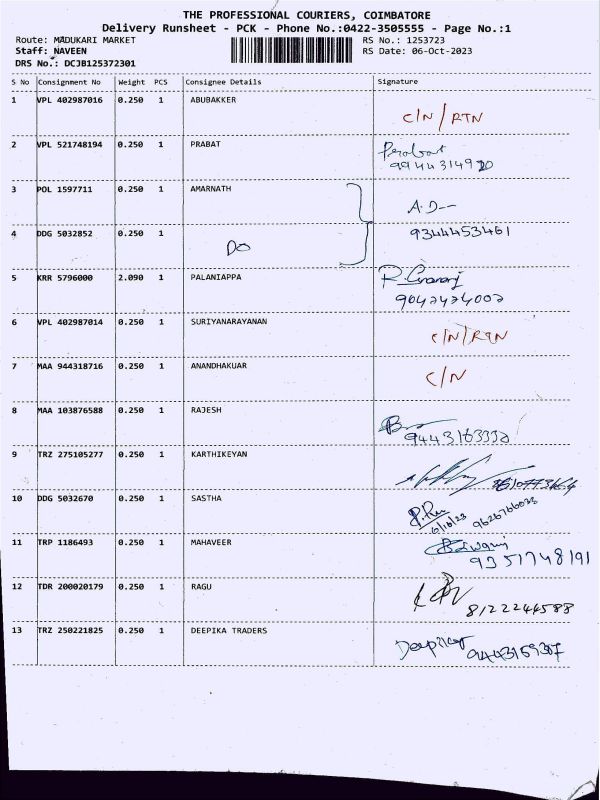 THE PROFESSIONAL COURIERS, COIMBATORE
Delivery Runsheet - PCK - Phone No.:0422-3505555 - Page No.:1
Route: MADUKARI MARKET RS No.: 1253723
Staff: NAVEEN RS Date: 06-Oct-2023
DRS No.: DCJB125372301
S No Consignment No Weight PCS Consignee Details Signature
1 VPL 402987016 0.250 1 ABUBAKKER C/N/RTN
2 VPL 521748194 0.250 1 PRABAT Prabat
9944314920
3 POL 1597711 0.250 1 AMARNATH A.D--
4 DDG 5032852 0.250 1 Do 9344453461
5 KRR 5796000 2.090 1 PALANIAPPA
9042424002
6 VPL 402987014 0.250 1 SURIYANARAYANAN C/N/RTN
7 MAA 944318716 0.250 1 ANANDHAKUAR C/N
8 MAA 103876588 0.250 1 RAJESH
9443163332
9 TRZ 275105277 0.250 1 KARTHIKEYAN
10 DDG 5032670 0.250 1 SASTHA
6/10/23 9626766023
11 TRP 1186493 0.250 1 MAHAVEER
9351748191
12 TDR 200020179 0.250 1 RAGU
8122244588
13 TRZ 250221825 0.250 1 DEEPIKA TRADERS
9443159387